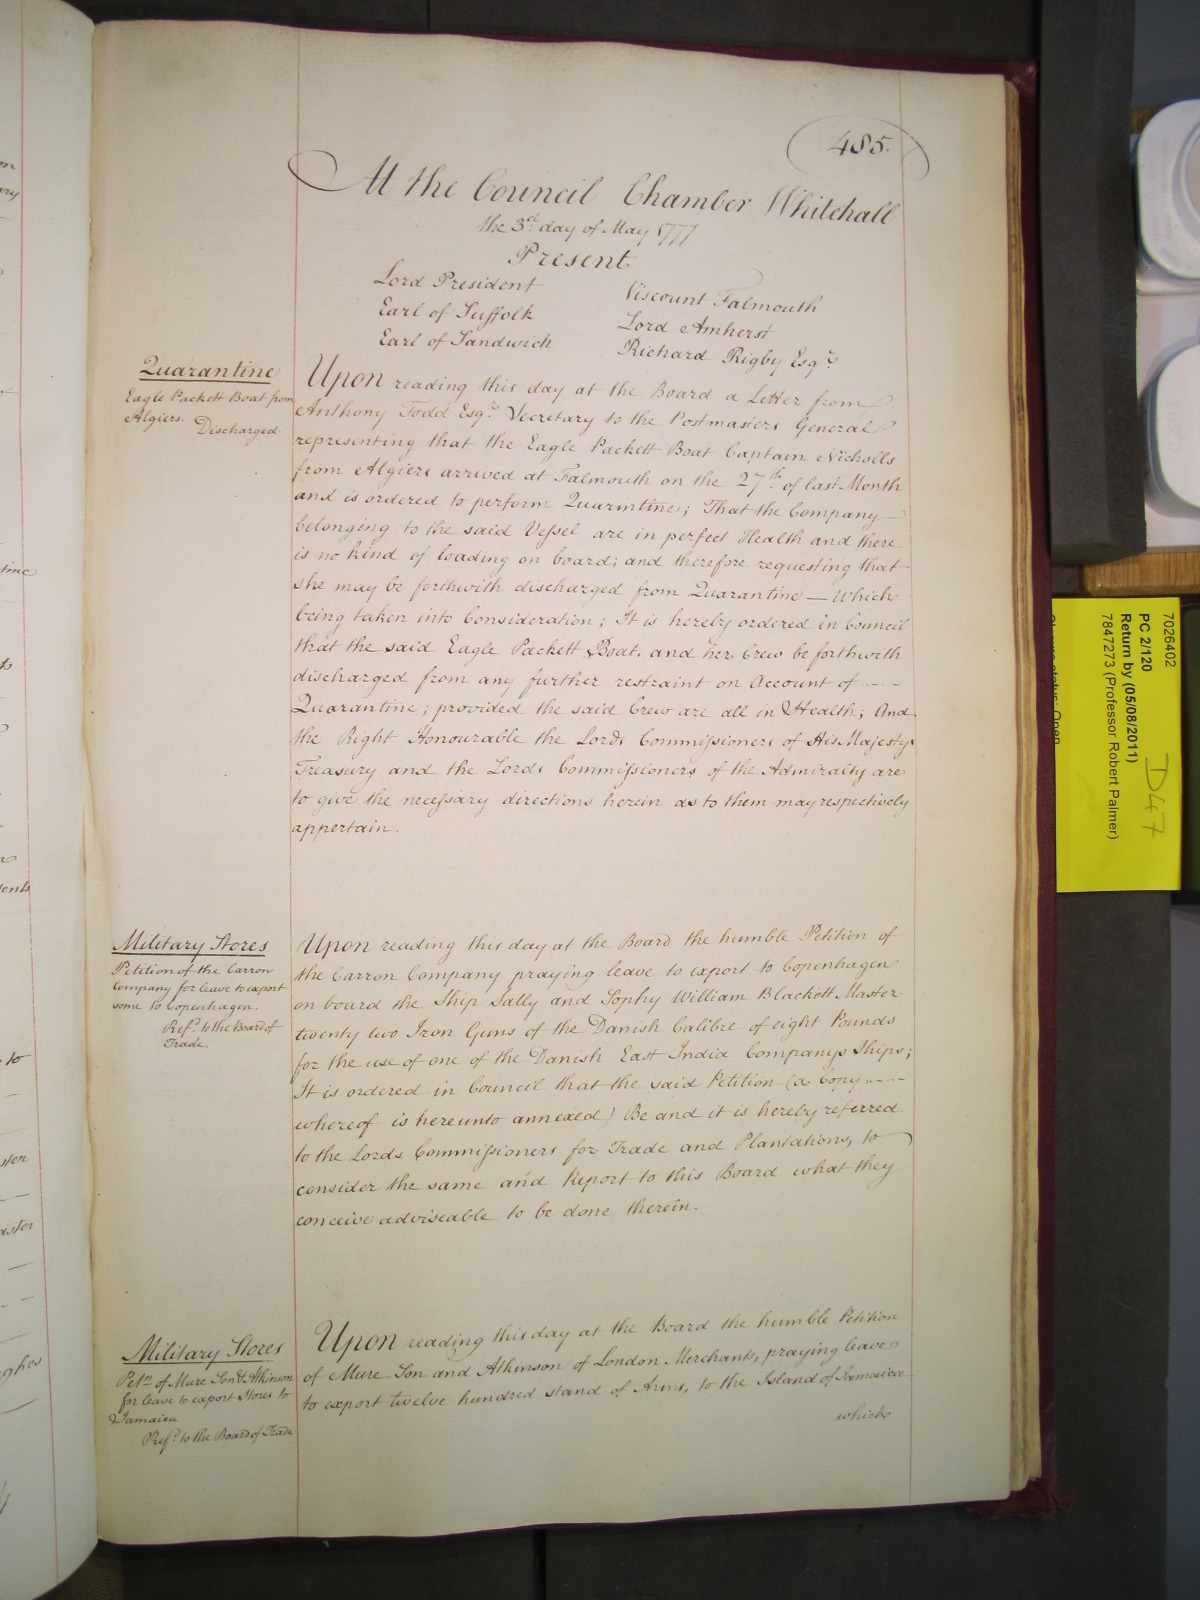 485.
At the Council Chamber Whitehall
the 3rd day of May 1777
Present
Lord President
Earl of Suffolk
Earl of Sandwich
Viscount Falmouth
Lord Amherst
Richard Rigby Esqr.
Quarantine
Eagle Packett Boat from
Algiers.
Discharged
Upon reading this day at the Board a Letter from
Anthony Todd Esqr. Secretary to the Postmasters General
representing that the Eagle Packett Boat Captain Nicholls
from Algiers arrived at Falmouth on the 27th. of last Month
and is ordered to perform Quarintine; That the Company
belonging to the said Vessel are in perfect Health and there
is no kind of loading on board; and therefore requesting that
she may be forthwith discharged from Quarantine — Which
being taken into Consideration; It is hereby ordered in Council
that the said Eagle Packett Boat, and her Crew be forthwith
discharged from any further restraint on Account of ----
Quarantine; provided the said Crew are all in Health; And
the Right Honourable the Lords Commissioners of His Majestys
Treasury and the Lords Commissioners of the Admiralty are
to give the necessary directions herein as to them may respectively
appertain.
Military Stores
Petition of the Carron
Company for leave to export
some to Copenhagen.
Refd. to the Board of
Trade.
Upon reading this day at the Board the humble Petition of
the Carron Company praying leave to export to Copenhagen
on board the Ship Sally and Sophy William Blackett Master
twenty two Iron Guns of the Danish Calibre of eight Pounds
for the use of one of the Danish East India Companys Ships;
It is ordered in Council that the said Petition (a Copy ----
whereof is hereunto annexed) Be and it is hereby referred
to the Lords Commissioners for Trade and Plantations, to
consider the same and Report to this Board what they
conceive adviseable to be done therein.
Military Stores
Petn. of Mure Son & Atkinson
for leave to export Stores to
Jamaica
Refd. to the Board of Trade
Upon reading this day at the Board the humble Petition
of Mure Son and Atkinson of London Merchants, praying leave
to export twelve hundred stand of Arms, to the Island of Jamaica
which
7026402
PC 2/120
Return by (05/08/2011)
7847273 (Professor Robert Palmer)
D47